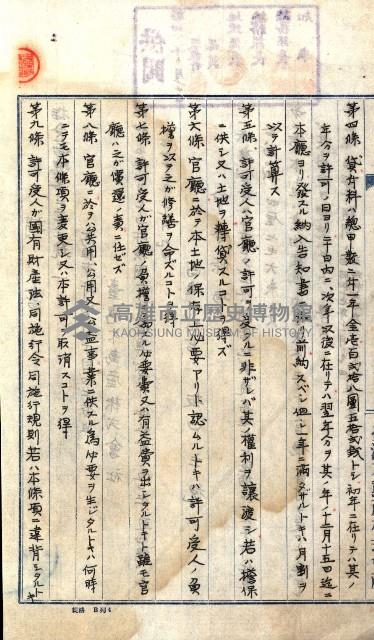 第四條 貸付料ハ總甲數ニ對シ年金壱百貳拾八圓五拾貳錢トシ初年ニ在リテハ其ノ
年分ヲ許可ノ日ヨリ三十日内ニ、次年以後ニ在リテハ翌年分ヲ其ノ年ノ十二月十五日迄ニ
本廳ヨリ發スル納入告知書ニ依リ前納スベシ但シ一年ニ滿タザルトキハ月割ヲ
以テ計算ス
第五條 許可受人ハ官廳ノ許可ヲ受クルニ非ザレバ其ノ權利ヲ讓渡シ若ハ擔保
ニ供シ又ハ土地ヲ轉貸スルコトヲ得ズ
第六條 官廳ニ於テ本土地ノ保存上必要アリト認ムルトキハ許可受人ノ負
擔ヲ以テ之ガ修繕ヲ命ズルコトヲ得
第七條 許可受人ガ官廳ノ負擔ニ屬スル必要費又ハ有益費ヲ出シタルトキト雖モ官
廳ハ之ガ償還ノ責ニ任ゼズ
第八條 官廳ニ於テ公共用、公用又ハ公益事業ニ供スル爲必要ヲ生ジタルトキハ何時
ニテモ本條項ヲ變更シ又ハ本許可ヲ取消スコトヲ得
第九條 許可受人ガ國有財產法、同施行令、同施行規則若ハ本條項ニ違背シタルトキ
高雄市立歷史博物館
KAOHSIUNG MUSEUM OF HISTORY
B列4